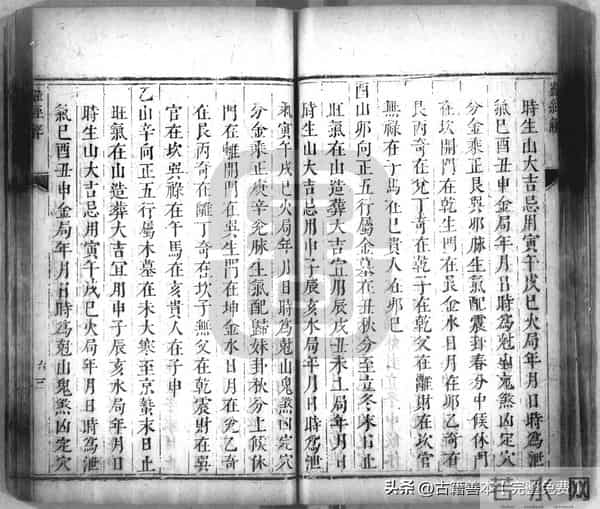 時生山大吉忌用寅午戌巳火局年月日時為泄
氣巳酉丑申金局年月日時為尅山鬼煞凶定穴
分金乘正艮巽脉生氣配震卦春分中候休門
在坎開門在乾生門在艮金水日月在卯乙奇在
艮丙奇在兌丁奇在乾子在乾父在離財在坎官
無祿在子馬在巳貴人在卯巳
酉山卯向正五行屬金墓在丑秋分至立冬末日止
旺氣在山造葬大吉宜用辰戌丑未土局年月日
時生山大吉忌用申子辰亥水局年月日時為泄
氣寅午戌巳火局年月日時為尅山鬼煞凶定穴
分金乘正庚辛兌脉生氣配歸妹卦秋分上候休
門在離開門在巽生門在坤金水日月在兌乙奇
在艮丙奇在離丁奇在坎子無父在乾震財在巽
官在坎巽祿在午馬在亥貴人在子申
乙山辛向正五行屬木墓在未大寒至京蟄末日止
旺氣在山造葬大吉宜用申子辰亥水局年月日
時生山大吉忌用寅午戌巳火局年月日時為泄
氣巳酉丑申金局年月日時為尅山鬼煞凶定穴
头条 @古籍善本十完整免费